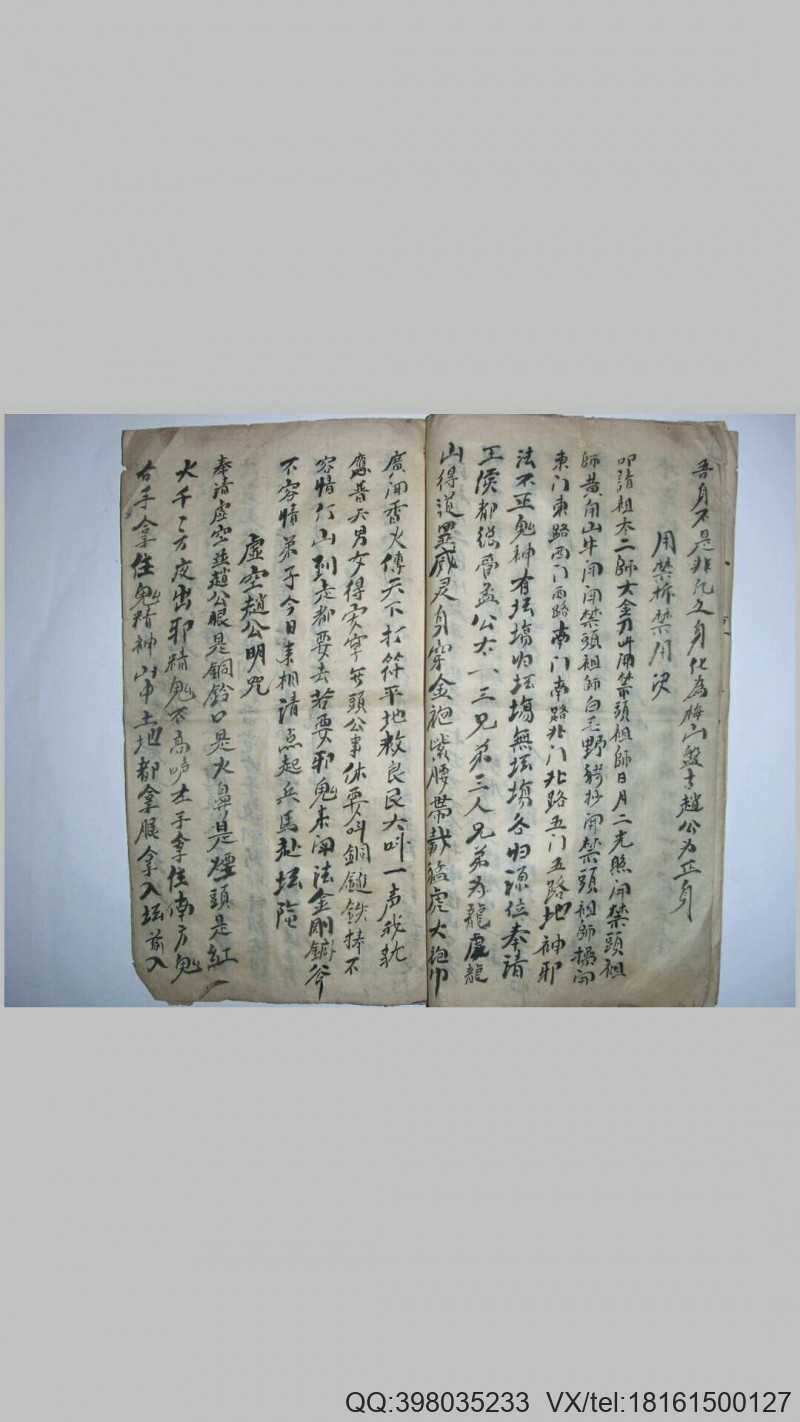 吾身不是非凡之身化為梅山盤古趙公为正身
用禁拆禁用决
叩請祖本二師大金刀开閉禁頭祖師日月二光照開禁頭祖
師黄角山牛開閉禁頭祖師白 野猪抄開禁頭祖師 開
東门東路西门西路南门南路北门北路五门五路地神邪
法不正鬼神有坛塲归坛塲無坛塲各归源位奉請
王侯都 孟公大八三兄弟三人兄弟为龍虎龍
山得道呈威灵身穿金袍紫腰帶 猛虎大 巾
廣開香火傳天下打符平地救良民大叫一声我就
應普天男女得 頭公事休要叫銅鎚鉄捧不
容情行山到走都要去若要邪鬼未開法金剛 斧
不容情弟子今日来相請点起兵馬赴坛
虚空趙公明咒
奉請虚空並趙公眼是銅鈴口是火鼻是煙頭是紅
火千千方度出邪精鬼不高 左手拿住南方鬼
右手拿住鬼精神山中土地都拿服拿入坛前入
QQ:398035233 VX/tel:18161500127